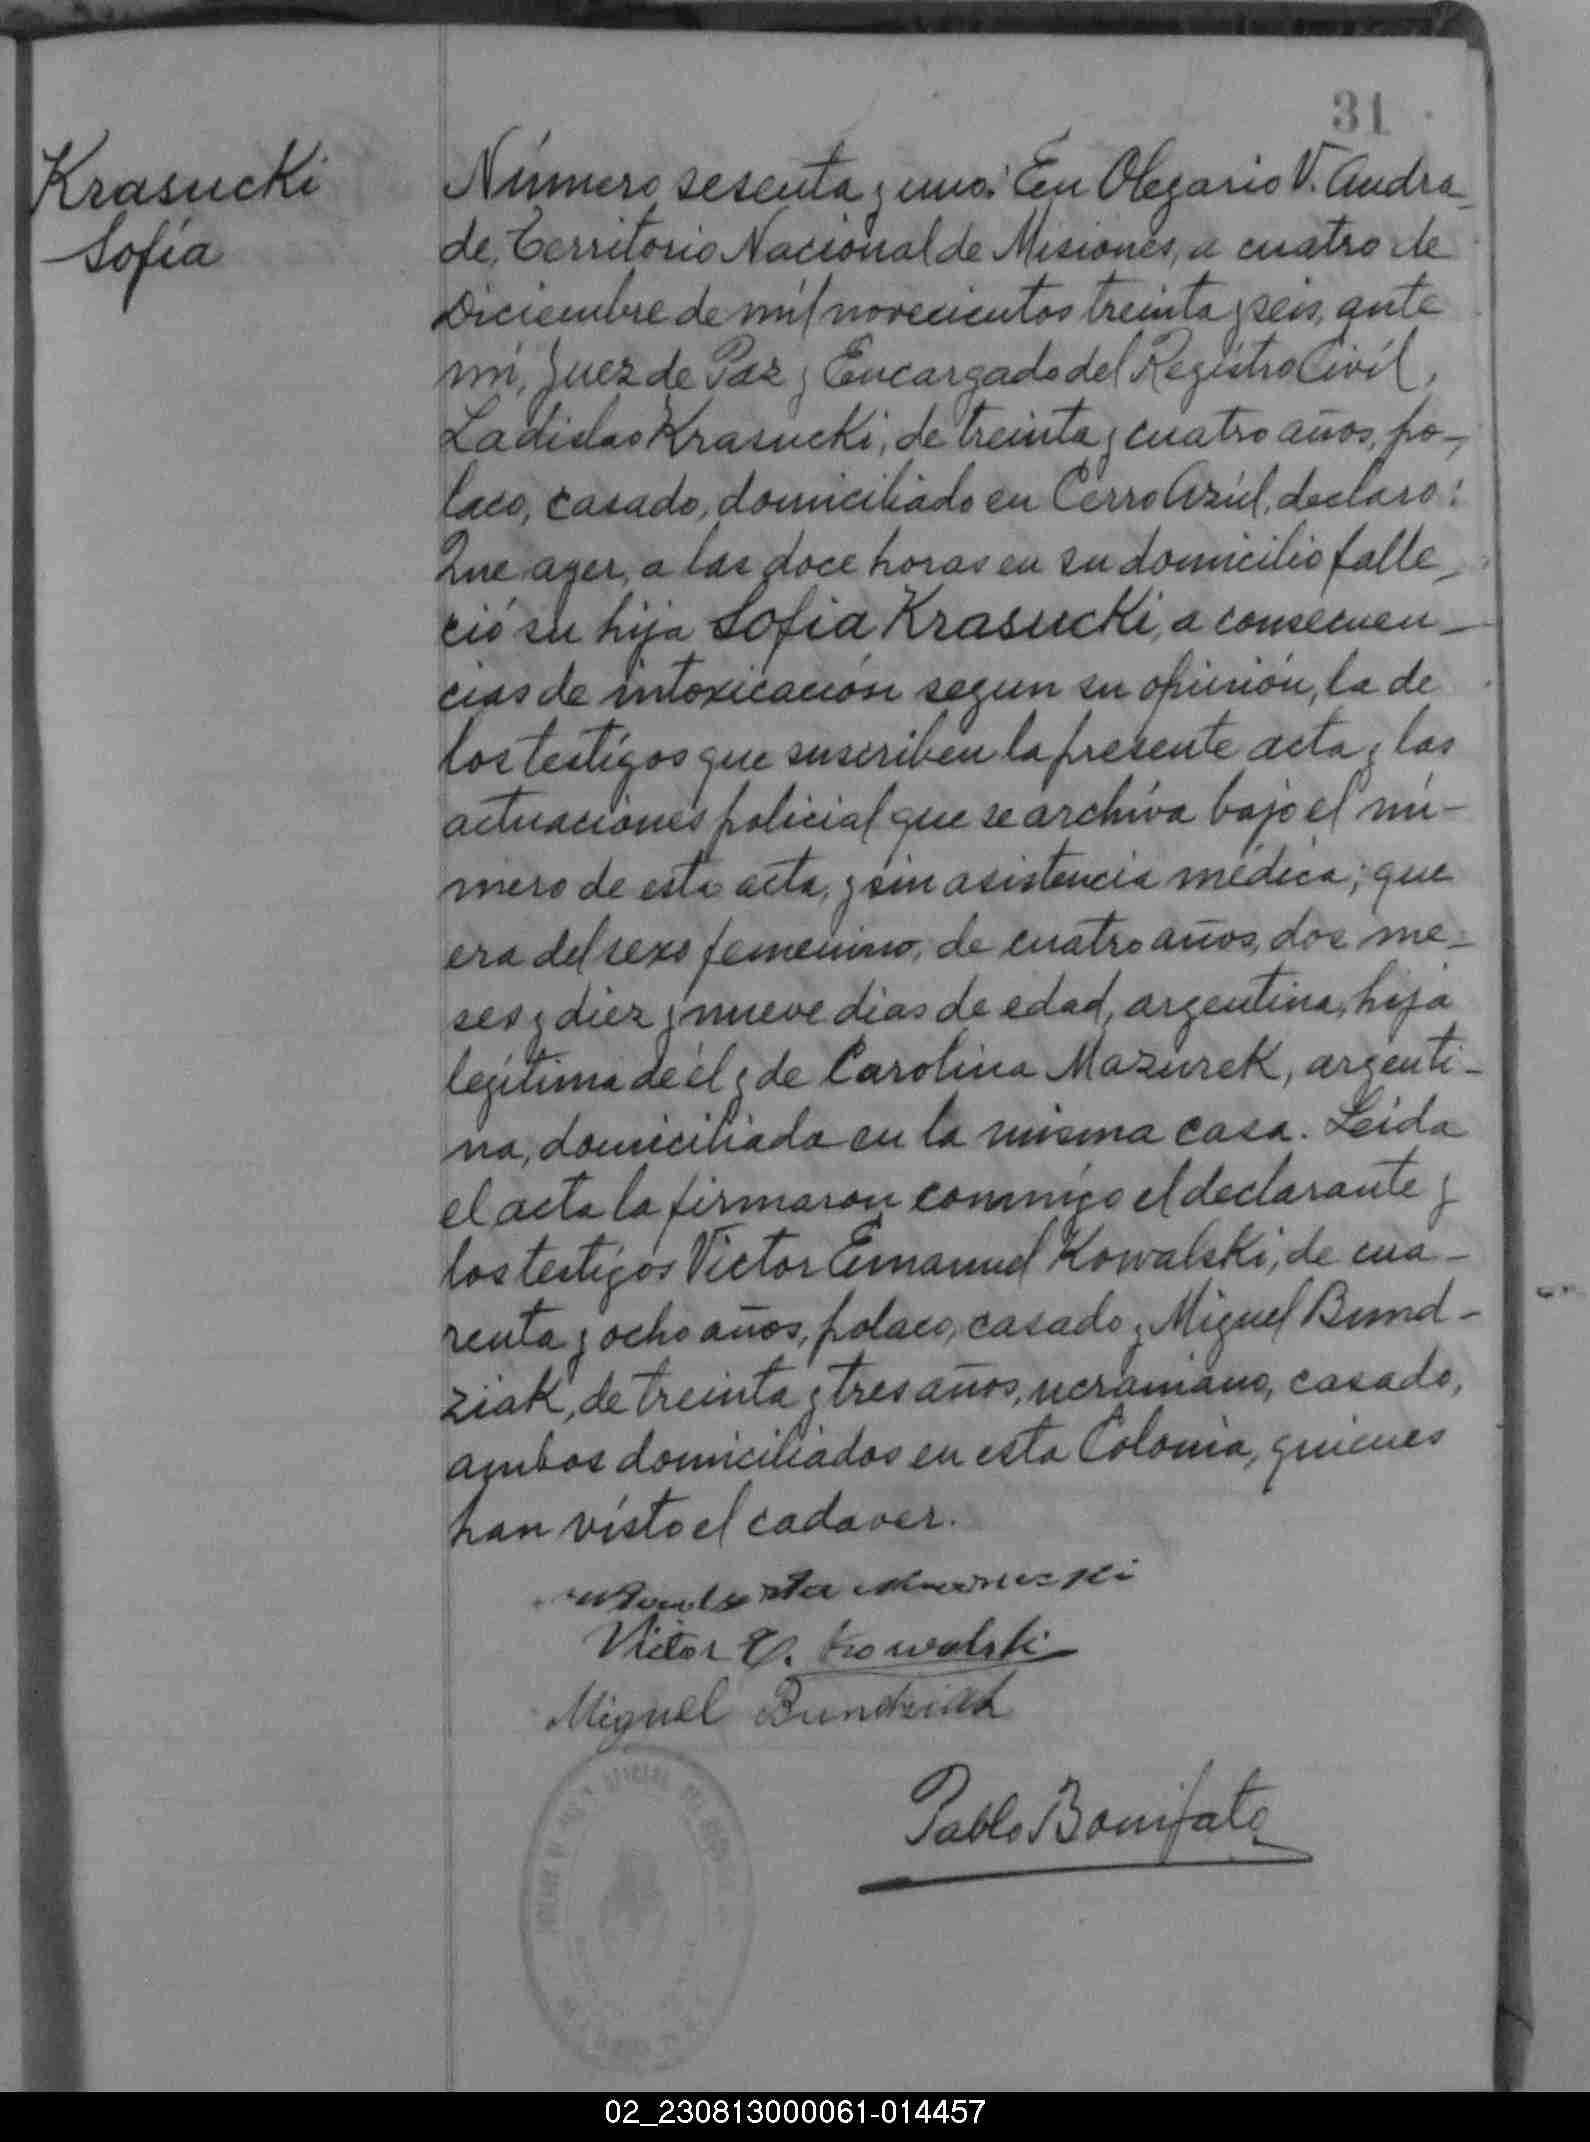 31
Krasucki
Sofía
Número sesenta y uno: En Olegario V. Andra-
de, Territorio Nacional de Misiones, a cuatro de
Diciembre de mil novecientos treinta y seis, ante
mí, Juez de Paz y Encargado del Registro Civil,
Ladislao Krasucki, de treinta y cuatro años, po-
laco, casado, domiciliado en Cerro Azúl, declaro:
Que ayer, a las doce horas en su domicilio falle-
ció su hija Sofia Krasucki, a consecuen-
cias de intoxicación segun su opinión, la de
los testigos que suscriben la presente acta y las
actuaciones policial que se archiva bajo el nú-
mero de esta acta, y sin asistencia médica; que
era del sexo femenino, de cuatro años, dos me-
ses y diez y nueve dias de edad, argentina, hija
legítima de él y de Carolina Mazurek, argenti-
na, domiciliada en la misma casa. Leida
el acta la firmaron conmigo el declarante y
los testigos Victor Emanuel Kowalski, de cua-
renta y ocho años, polaco, casado y Miguel Bund-
ziak, de treinta y tres años, ucraniano, casado,
ambos domiciliados en esta Colonia, quienes
han visto el cadaver.
Victor E. Kowalski
Miguel Bundziak
Pablo Bonifato
02_230813000061-014457